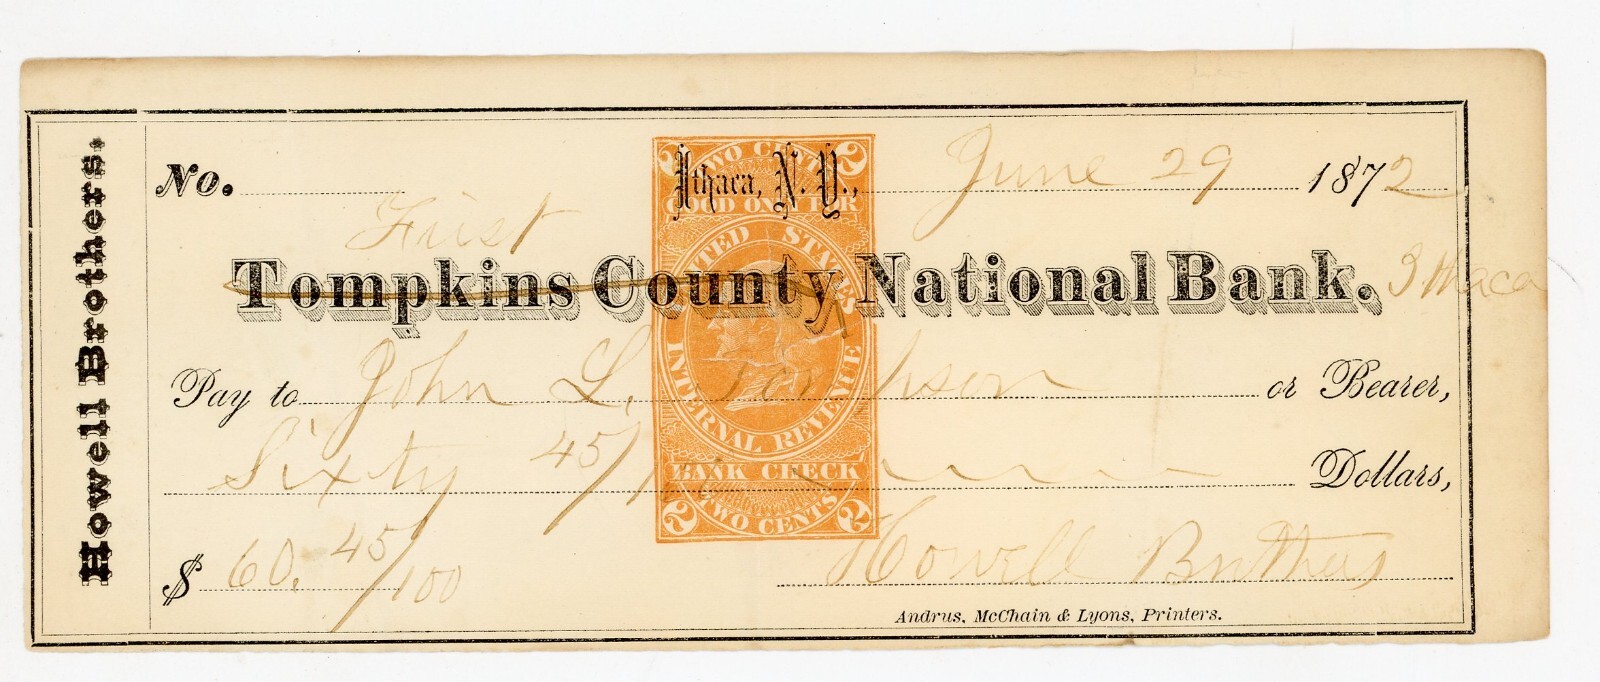 Howell Brothers.
No. Ithaca, N. Y., June 29 1872
TWO CENTS
2 2
GOOD ONLY FOR
First
Tompkins County National Bank. Ithaca
UNITED STATES
INTERNAL REVENUE
Pay to John L. or Bearer,
Sixty 45/100 Dollars,
BANK CHECK
TWO CENTS
2 2
$ 60. 45/100
Howell Brothers
Andrus, McChain & Lyons, Printers.